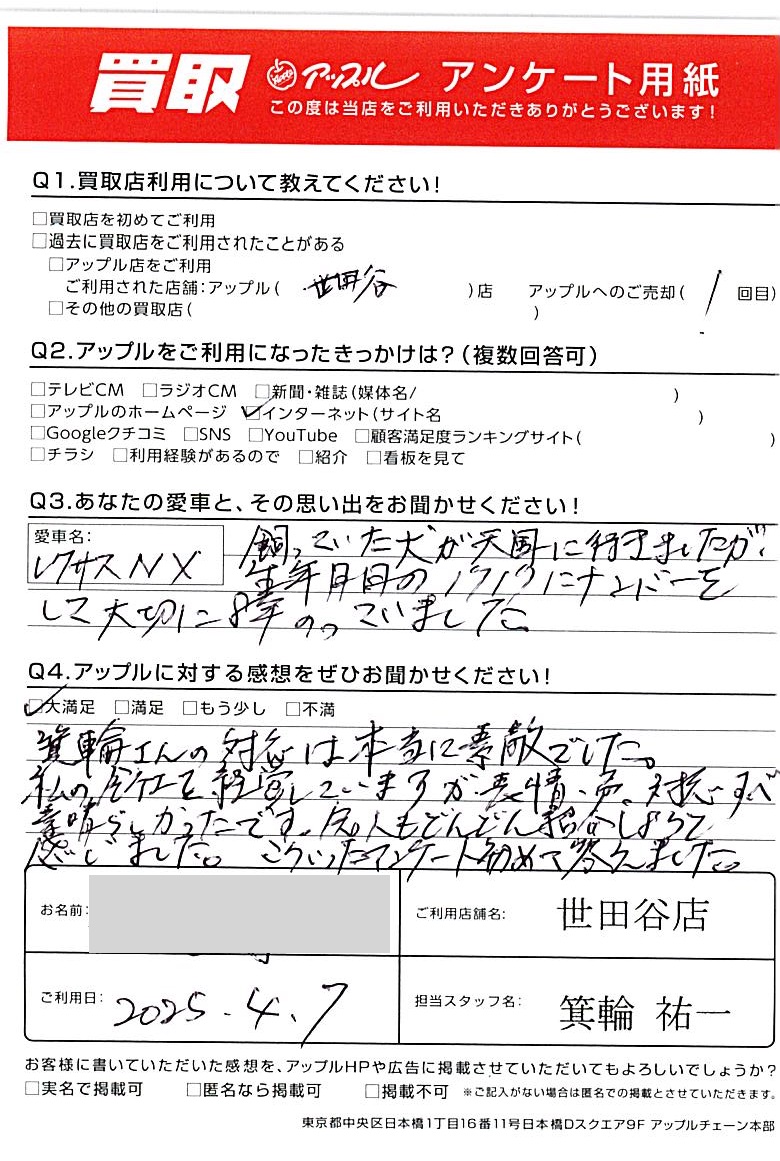 買取 Apple アップル アンケート用紙
この度は当店をご利用いただきありがとうございます!
Q1.買取店利用について教えてください!
□買取店を初めてご利用
□過去に買取店をご利用されたことがある
□アップル店をご利用
ご利用された店舗:アップル( 世田谷 )店 アップルへのご売却( 1 回目)
□その他の買取店( )
Q2.アップルをご利用になったきっかけは?(複数回答可)
□テレビCM □ラジオCM □新聞・雑誌(媒体名/ )
□アップルのホームページ ☑インターネット(サイト名 )
□Googleクチコミ □SNS □YouTube □顧客満足度ランキングサイト( )
□チラシ □利用経験があるので □紹介 □看板を見て
Q3.あなたの愛車と、その思い出をお聞かせください!
愛車名:
レクサスNX 飼っていた犬が天国に行きましたが、
生年月日の1212にナンバーを
して大切に8年のっていました
Q4.アップルに対する感想をぜひお聞かせください!
☑大満足 □満足 □もう少し □不満
箕輪さんの対応は本当に素敵でした。
私も会社を経営していますが表情、声、対応すべ
素晴らしかったです。友人もどんどん紹介しようと
感じました。こういったアンケート初めて答えました。
お名前: ご利用店舗名: 世田谷店
ご利用日: 2025.4.7 担当スタッフ名: 箕輪 祐一
お客様に書いていただいた感想を、アップルHPや広告に掲載させていただいてもよろしいでしょうか?
□実名で掲載可 □匿名なら掲載可 □掲載不可 ※ご記入がない場合は匿名での掲載とさせていただきます。
東京都中央区日本橋1丁目16番11号日本橋Dスクエア9F アップルチェーン本部